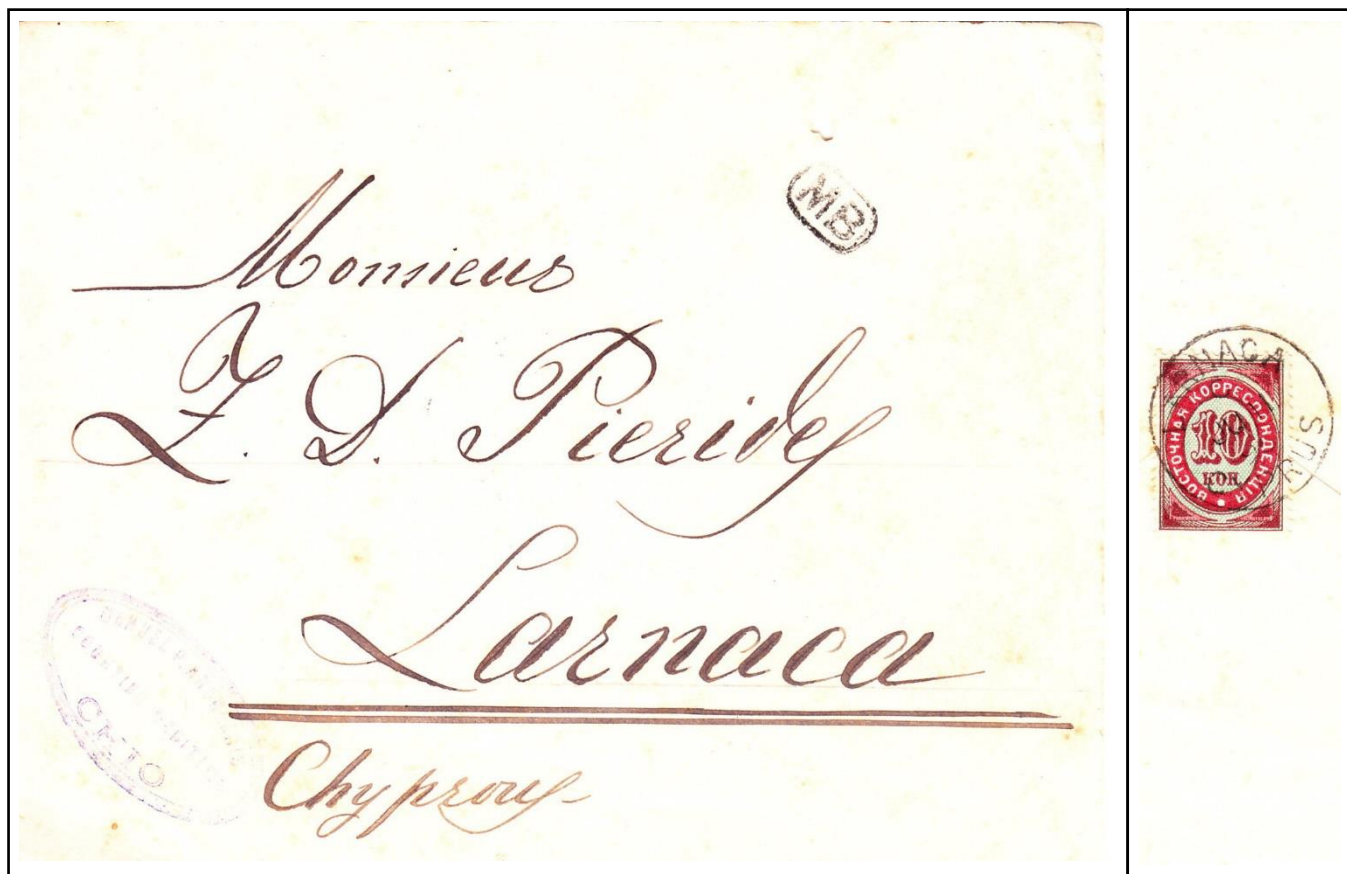 MB
Monsieur
Z. D. Pierides
Larnaca
Chyprous
CHIO
LARNACA
CYPRUS
ВОСТОЧНАЯ КОРРЕСПОНДЕНЦІЯ
10
КОП.